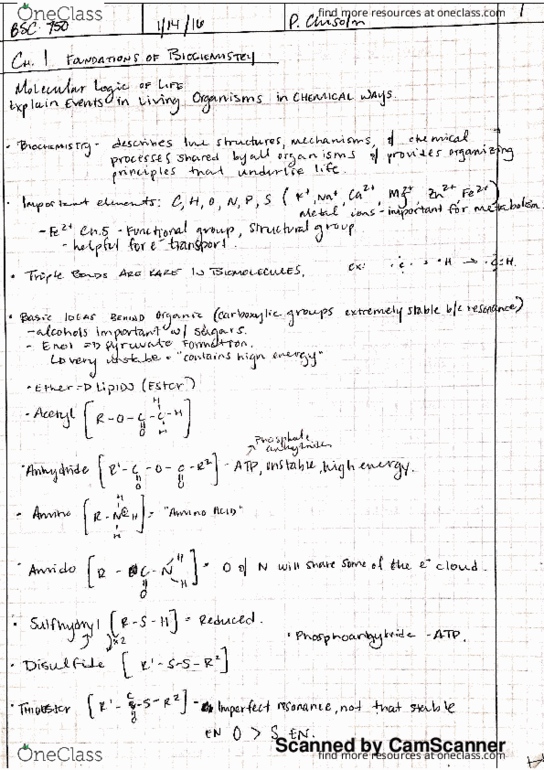 OneClass
find more resources at oneclass.com
1
BSC 750 1/14/16 P. Chisolm
Ch. 1 Foundations of Biochemistry
Molecular Logic of Life
Explain Events in Living Organisms in CHEMICAL WAYS.
• Biochemistry - describes the structures, mechanisms, & chemical
processes shared by all organisms & provides organizing
principles that underlie life.
• Important elements: C, H, O, N, P, S (K+, Na+ Ca2+, Mg2+ Zn2+ Fe2+)
metal ions - important for metabolism.
- Fe2+ Ch.5 - Functional group, Structural group.
- helpful for e- transport.
• Triple Bonds ARE RARE IN BIOMOLECULES. ex: ·C· + ·H → ·C:H
• Basic Ideas Behind Organic (carboxylic groups extremely stable b/c resonance)
- alcohols important w/ sugars.
- Enol => pyruvate formation.
↳ very unstable = "contains high energy"
• Ether → Lipids (Ester)
• Acetyl [R-O-C-C-H]
H
O H
Phosphate
anhydrides
• Anhydride [R'-C-O-C-R2] - ATP, unstable, high energy.
O O
• Amino [R-N-H] = "Amino Acid"
H
H
• Amido [R-C-N] = O & N will share some of the e- cloud.
H
O H
• Sulfhydryl [R-S-H] = Reduced.
x2
• Phosphoanhydride - ATP.
• Disulfide [R'-S-S-R2]
• Thioester [R'-C-S-R2] - Imperfect resonance, not that stable
O
EN O > S EN.
Scanned by CamScanner
OneClass
find more resources at oneclass.com